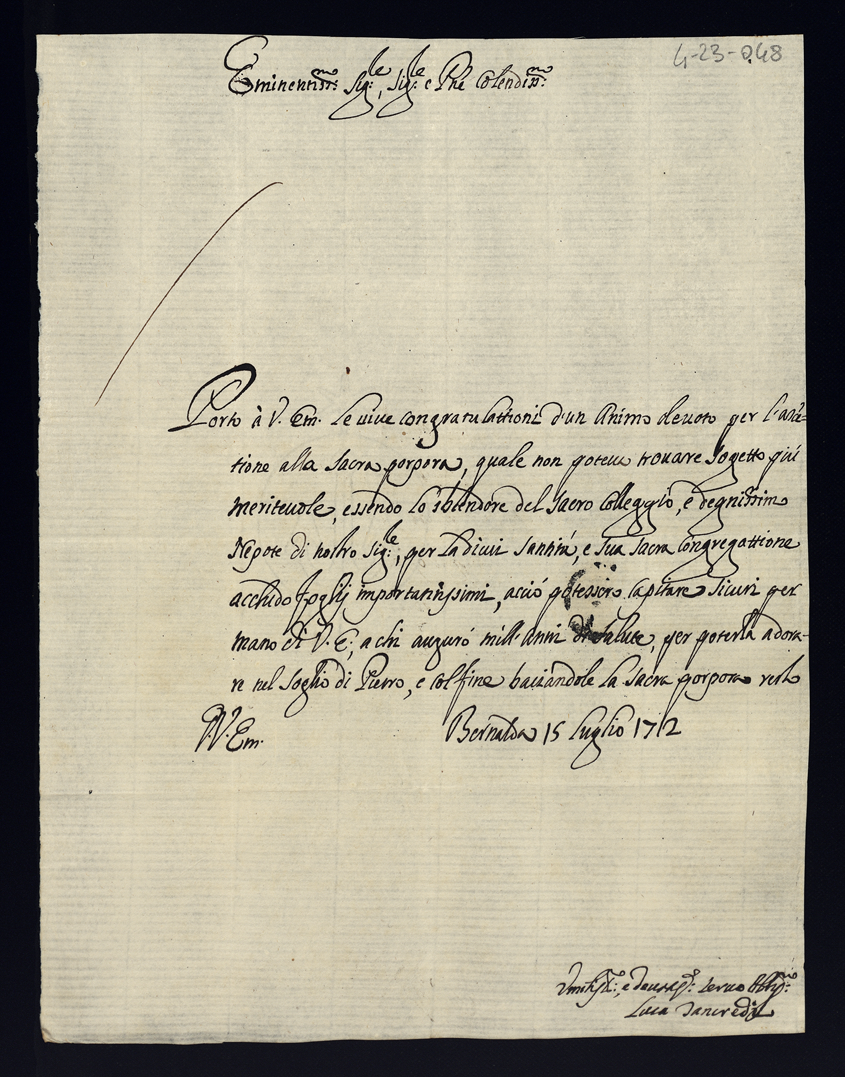 4-23-048
Eminentiss:mo Sig:le, Sig:le e Pñe Colendiss:mo
Porto à V. Em. le vive congratulattioni d'un Animo devoto per l'
tione alla Sacra porpora, quale non poteva trovare sogetto più
meritevole, essendo lo splendore del Sacro Colleggio, e degnissimo
Nepote di nostro Sig:re, per la di cui Santità, e sua Sacra Congregattione
acchiudo foglij importantissimi, acciò potessero capitare sicuri per
mano di V. E., a chi auguró mill'anni di salute, per poterla adora-
re nel Soglio di Pietro, e col fine baciandole la Sacra porpora resto
V. Em. Bernalda 15 Luglio 1712
e Servo
Luca Tancredi